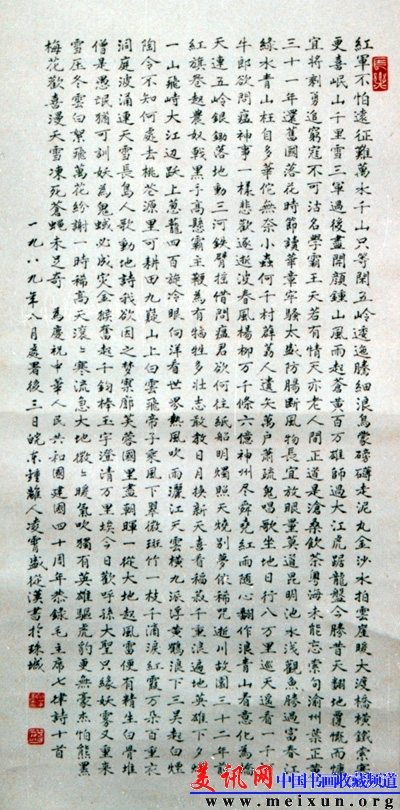 紅軍不怕遠征難萬水千山只等閑五岭逶迤騰細浪烏蒙磅礴走泥丸金沙水拍雲崖暖大渡橋橫鐵索寒
更喜岷山千里雪三軍過後盡開顏鍾山風雨起蒼黃百萬雄師過大江虎踞龍盤今勝昔天翻地覆慨而慷
宜將剩勇追窮寇不可沽名學霸王天若有情天亦老人間正道是滄桑飲茶粵海未能忘索句渝州葉正黃
三十一年還舊國落花時節讀華章牢騷太盛防腸斷風物長宜放眼量莫道昆明池水淺觀魚勝過富春江
綠水青山枉自多華佗無奈小蟲何千村薜荔人遺矢萬戶蕭疏鬼唱歌坐地日行八萬里巡天遙看一千河
牛郎欲問瘟神事一樣悲歡逐逝波春風楊柳萬千條六億神州盡舜堯紅雨隨心翻作浪青山着意化為橋
天連五岭銀鋤落地動三河鐵臂搖借問瘟君欲何往紙船明燭照天燒別夢依稀咒逝川故園三十二年前
紅旗卷起農奴戟黑手高懸霸主鞭為有犧牲多壯志敢教日月換新天喜看稻菽千重浪遍地英雄下夕煙
一山飛峙大江邊躍上蔥蘢四百旋冷眼向洋看世界熱風吹雨灑江天雲橫九派浮黃鶴浪下三吳起白煙
陶令不知何處去桃花源里可耕田九嶷山上白雲飛帝子乘風下翠微斑竹一枝千滴淚紅霞萬朵百重衣
洞庭波涌連天雪長島人歌動地詩我欲因之夢寥廓芙蓉國里盡朝暉一從大地起風雷便有精生白骨堆
僧是愚氓猶可訓妖為鬼蜮必成災金猴奮起千鈞棒玉宇澄清萬里埃今日歡呼孫大聖只緣妖霧又重來
雪壓冬雲白絮飛萬花紛謝一時稀高天滾〻寒流急大地微〻暖氣吹獨有英雄驅虎豹更無豪杰怕熊羆
梅花歡喜漫天雪凍死蒼蠅未足奇 為慶祝中華人民共和國建國四十周年恭錄毛主席七律詩十首
一九八九年八月處署後三日皖東鍾離人凌霄盛從漢書於珠城
美讯网 中国书画收藏频道
www.meixun.org